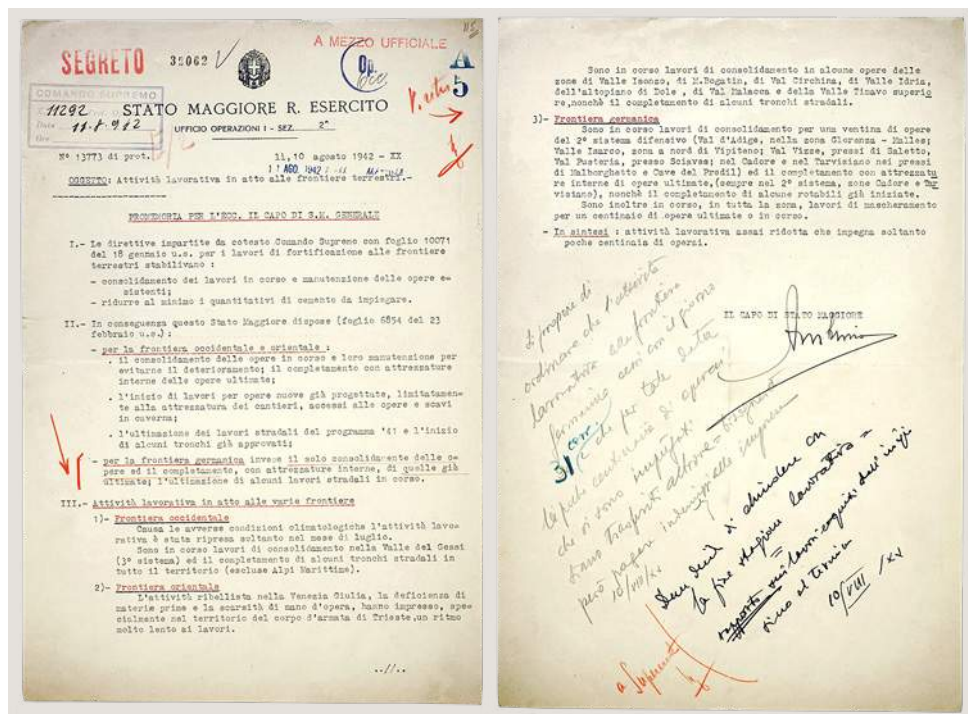 SEGRETO
35062
A MEZZO UFFICIALE
Op.
A
5
COMANDO SUPREMO
11292
11-8-942
STATO MAGGIORE R. ESERCITO
UFFICIO OPERAZIONI I - SEZ. 2ª
N° 13773 di prot.
lì, 10 agosto 1942 - XX
11 AGO. 1942
OGGETTO: Attività lavorativa in atto alle frontiere terrestri.-
PROMEMORIA PER L'ECC. IL CAPO DI S.M. GENERALE
I.- Le direttive impartite da cotesto Comando Supremo con foglio 10071
del 18 gennaio u.s. per i lavori di fortificazione alle frontiere
terrestri stabilivano :
- consolidamento dei lavori in corso e manutenzione delle opere e=
sistenti;
- ridurre al minimo i quantitativi di cemento da impiegare.
II.- In conseguenza questo Stato Maggiore dispose (foglio 6854 del 23
febbraio u.s.) :
- per la frontiera occidentale e orientale :
. il consolidamento delle opere in corso e loro manutenzione per
evitarne il deterioramento; il completamento con attrezzature
interne delle opere ultimate;
. l'inizio di lavori per opere nuove già progettate, limitatamen=
te alla attrezzatura dei cantieri, accessi alle opere e scavi
in caverna;
. l'ultimazione dei lavori stradali del programma '41 e l'inizio
di alcuni tronchi già approvati;
- per la frontiera germanica invece il solo consolidamento delle o=
pere ed il completamento, con attrezzature interne, di quelle già
ultimate; l'ultimazione di alcuni lavori stradali in corso.
III.- Attività lavorativa in atto alle varie frontiere
1)- Frontiera occidentale
Causa le avverse condizioni climatologiche l'attività lavo=
rativa è stata ripresa soltanto nel mese di luglio.
Sono in corso lavori di consolidamento nella Valle del Gessi
(3° sistema) ed il completamento di alcuni tronchi stradali in
tutto il territorio (escluse Alpi Marittime).
2)- Frontiera orientale
L'attività ribellista nella Venezia Giulia, la deficienza di
materie prime e la scarsità di mano d'opera, hanno impresso, spe=
cialmente nel territorio del corpo d'armata di Trieste,un ritmo
molto lento ai lavori.
..//..
Sono in corso lavori di consolidamento in alcune opere delle
zone di Valle Isonzo, di M.Bogatin, di Val Circhina, di Valle Idria,
dell'altopiano di Dole , di Val Malacca e della Valle Timavo superio
re,nonchè il completamento di alcuni tronchi stradali.
3)- Frontiera germanica
Sono in corso lavori di consolidamento per una ventina di opere
del 2° sistema difensivo (Val d'Adige, nella zona Glorenza - Malles;
Valle Isarco, zona a nord di Vipiteno; Val Vizze, pressi di Saletto,
Val Pusteria, presso Sciaves; nel Cadore e nel Tarvisiano nei pressi
di Malborghetto e Cave del Predil) ed il completamento con attrezzatu
re interne di opere ultimate,(sempre nel 2° sistema, zone Cadore e Tar
visiano), nonchè il completamento di alcune rotabili già iniziate.
Sono inoltre in corso, in tutta la zona, lavori di mascheramento
per un centinaio di opere ultimate o in corso.
- In sintesi : attività lavorativa assai ridotta che impegna soltanto
poche centinaia di operai.
IL CAPO DI STATO MAGGIORE
Si propone di
ordinare che l'attività
lavorativa alla frontiera
germanica cessi con il giorno
31 corr.
e che per tale data
le poche centinaia di operai
che vi sono impiegati
siano trasferiti altrove
però
10/VIII/XX
di chiudere con
la fine stagione lavorativa =
rapporto sui lavori eseguiti dall'inizio
sino al termine
10/VIII/XX
a Superesercito